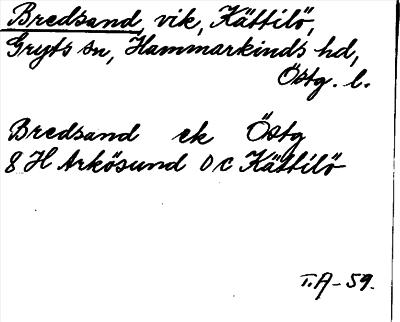 Bredsand, vik, Kättilö,
Gryts sn, Hammarkinds hd,
Östg. l.
Bredsand ek Östg
8 H Arkösund 0 c Kättilö
T.A-59.